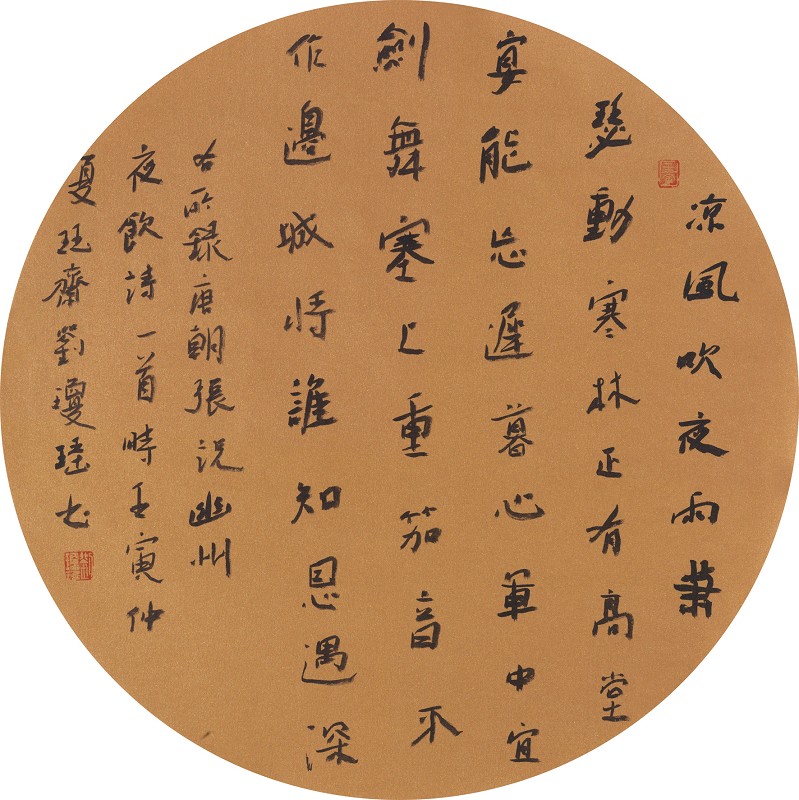 凉風吹夜雨蕭
瑟動寒林正有高堂
宴能忘遲暮心軍中宜
劍舞塞上重笳音不
作邊城將誰知恩遇深
右所録唐朝張説幽州
夜飲詩一首時壬寅仲
夏珏齋劉瓊瑤书